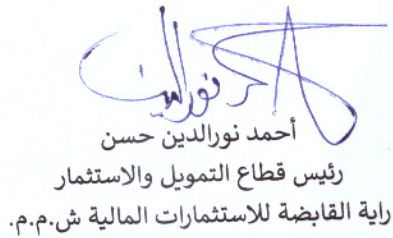 أحمد نورالدين حسن
رئيس قطاع التمويل والاستثمار
راية القابضة للاستثمارات المالية ش.م.م.